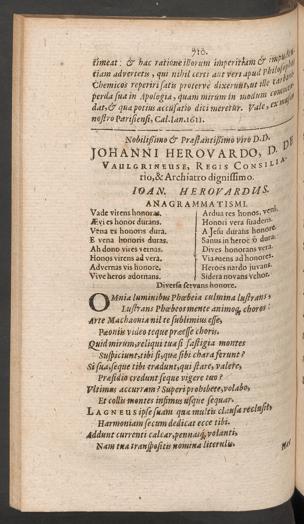 910.
timeat: & hac ratione illorum imperitiam & impuden
tiam advertetis, qui nihil certi aut veri apud Philosophos
Chemicos reperiri satis protervè dixerunt, ut ille
perda sua in Apologia, quam mirum in modum commen
dat, & quæ potius accusatio dici meretur. Vale, ex museo
nostro Parisiensi, Cal. Ian. 1611.
Nobilissimo & Præstantissimo viro D.D.
JOHANNI HEROVARDO, D. DE
VAULGRINEUSE, REGIS CONSILIA-
rio, & Archiatro dignissimo.
IOAN. HEROVARDUS.
ANAGRAMMATISMI.
Vade virens honoras. Ardua res honos, veni.
Ævi es honor durans. Honori vera suaderis.
Vena es honoris dura. A Jesu durans honore.
E vena honoris duras. Sanus in heroë ô dura.
Ah dono vires vernas. Dives honorans vera.
Honos virens ad vera. Via manens ad honores.
Advernas vis honore. Heroës nardo juvans.
Vive heros adornans. Sidera novans vehor.
Diversa servans honore.
OMnia luminibus Phœbeia culmina lustrans,
Lustrans Phœbeo mente animoq, choros:
Arte Machaonia nil te sublimius esse,
Pæoniis video teque præesse choris.
Quid mirum, reliqui tua si fastigia montes
Suspiciunt, tibi si, qua sibi chara ferunt?
Si sua, seque tibi credunt, qui stare, valere,
Præsidio credunt seque vigere tuo?
Vltimus accurram? Superi prohibete, volabo,
Et collis montes infimus usque sequar.
LAGNEUS ipse suam qua multis clausa reclusit,
Harmoniam secum dedicat ecce tibi.
Addunt currenti calcar, pennasq, volanti,
Nam tua transpositis nomina literulis.